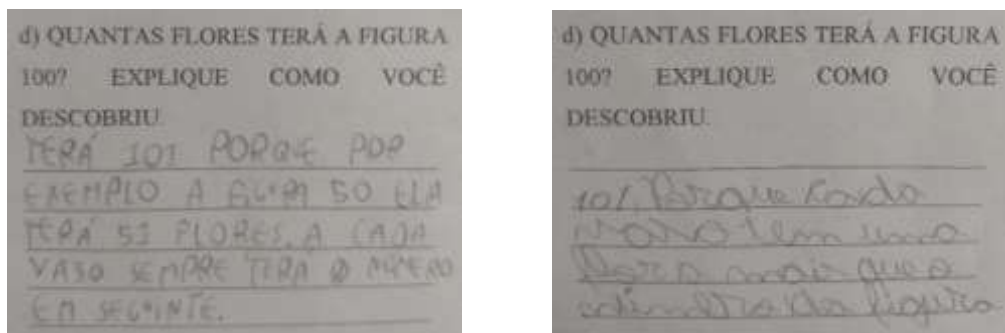 d) QUANTAS FLORES TERÁ A FIGURA
100? EXPLIQUE COMO VOCÊ
DESCOBRIU.
TERÁ 101 PORQUE POR
EXEMPLO A 50 ELA
TERÁ 51 FLORES. A CADA
VASO SEMPRE TERÁ O NÚMERO
EM SEGUINTE.
d) QUANTAS FLORES TERÁ A FIGURA
100? EXPLIQUE COMO VOCÊ
DESCOBRIU.
101. Porque cada
vaso tem uma
mais que o
da figura